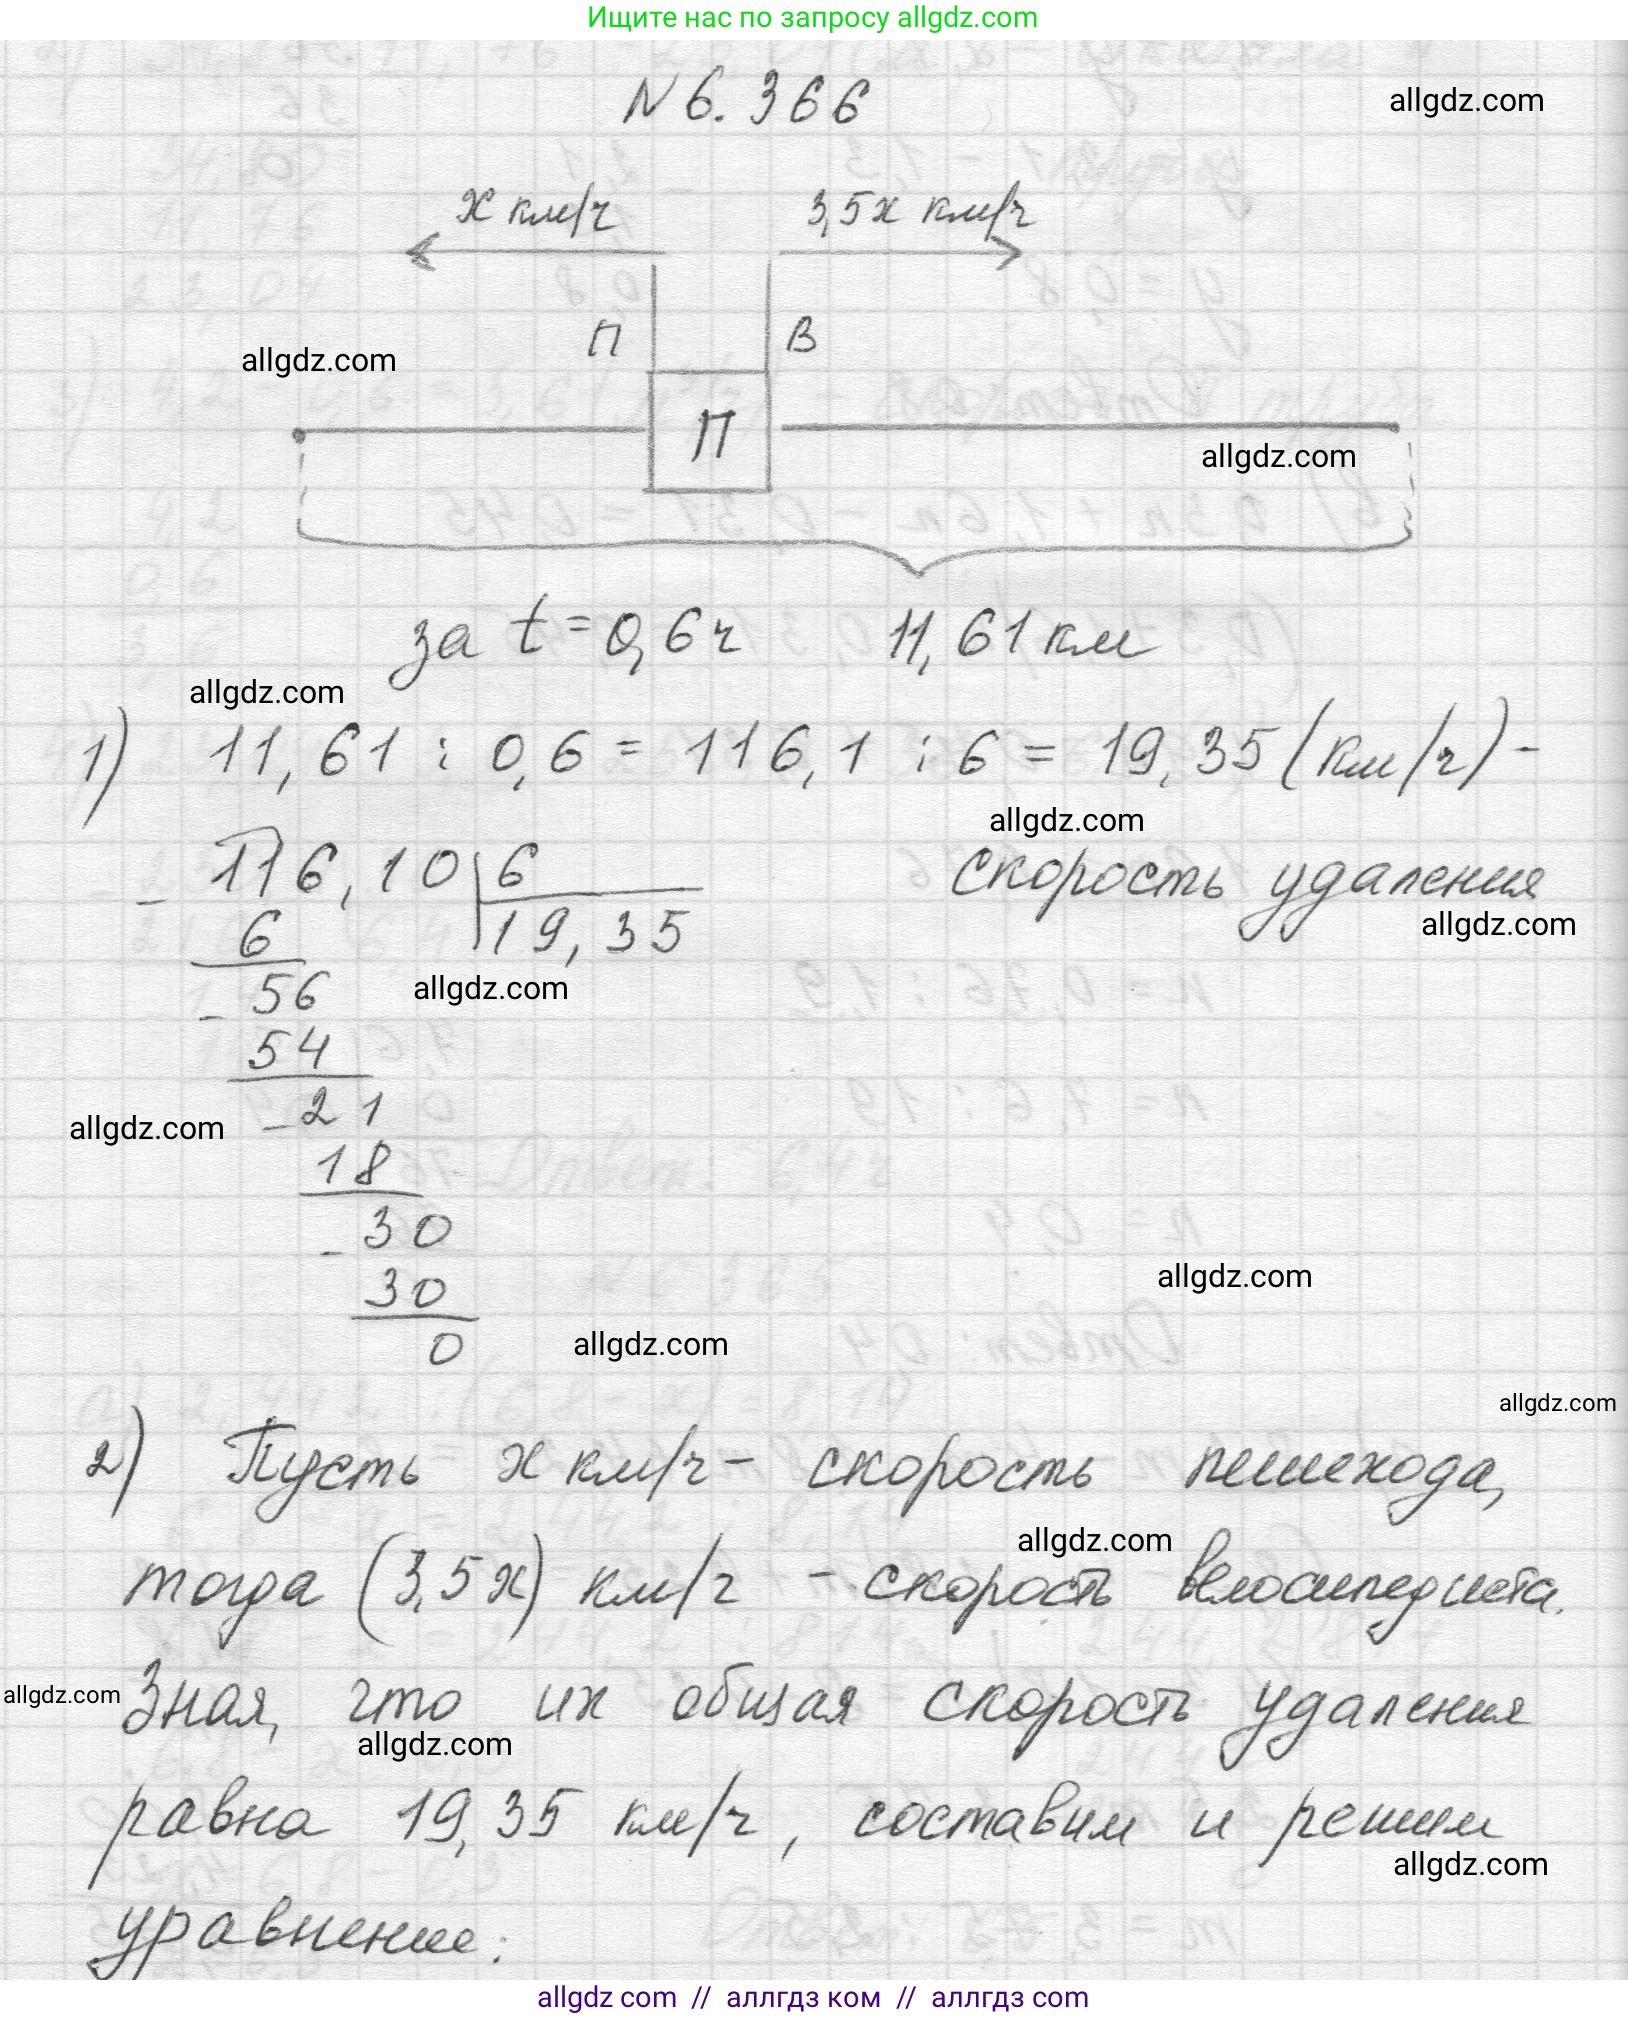 Ищите нас по запросу allgdz.com
N 6.366
allgdz.com
x км/ч
3,5x км/ч
П
В
allgdz.com
П
allgdz.com
за t = 0,6 ч 11,61 км
allgdz.com
1) 11,61 : 0,6 = 116,1 : 6 = 19,35 (км/ч) -
allgdz.com
скорость удаления
allgdz.com
- 116,10 | 6
6 19,35
allgdz.com
- 56
54
- 21
allgdz.com
18
- 30
allgdz.com
30
0
allgdz.com
allgdz.com
2) Пусть x км/ч - скорость пешехода,
allgdz.com
тогда (3,5x) км/ч - скорость велосипедиста.
allgdz.com
Зная, что их общая скорость удаления
allgdz.com
равна 19,35 км/ч, составим и решим
allgdz.com
уравнение:
allgdz com // аллгдз ком // аллгдз com